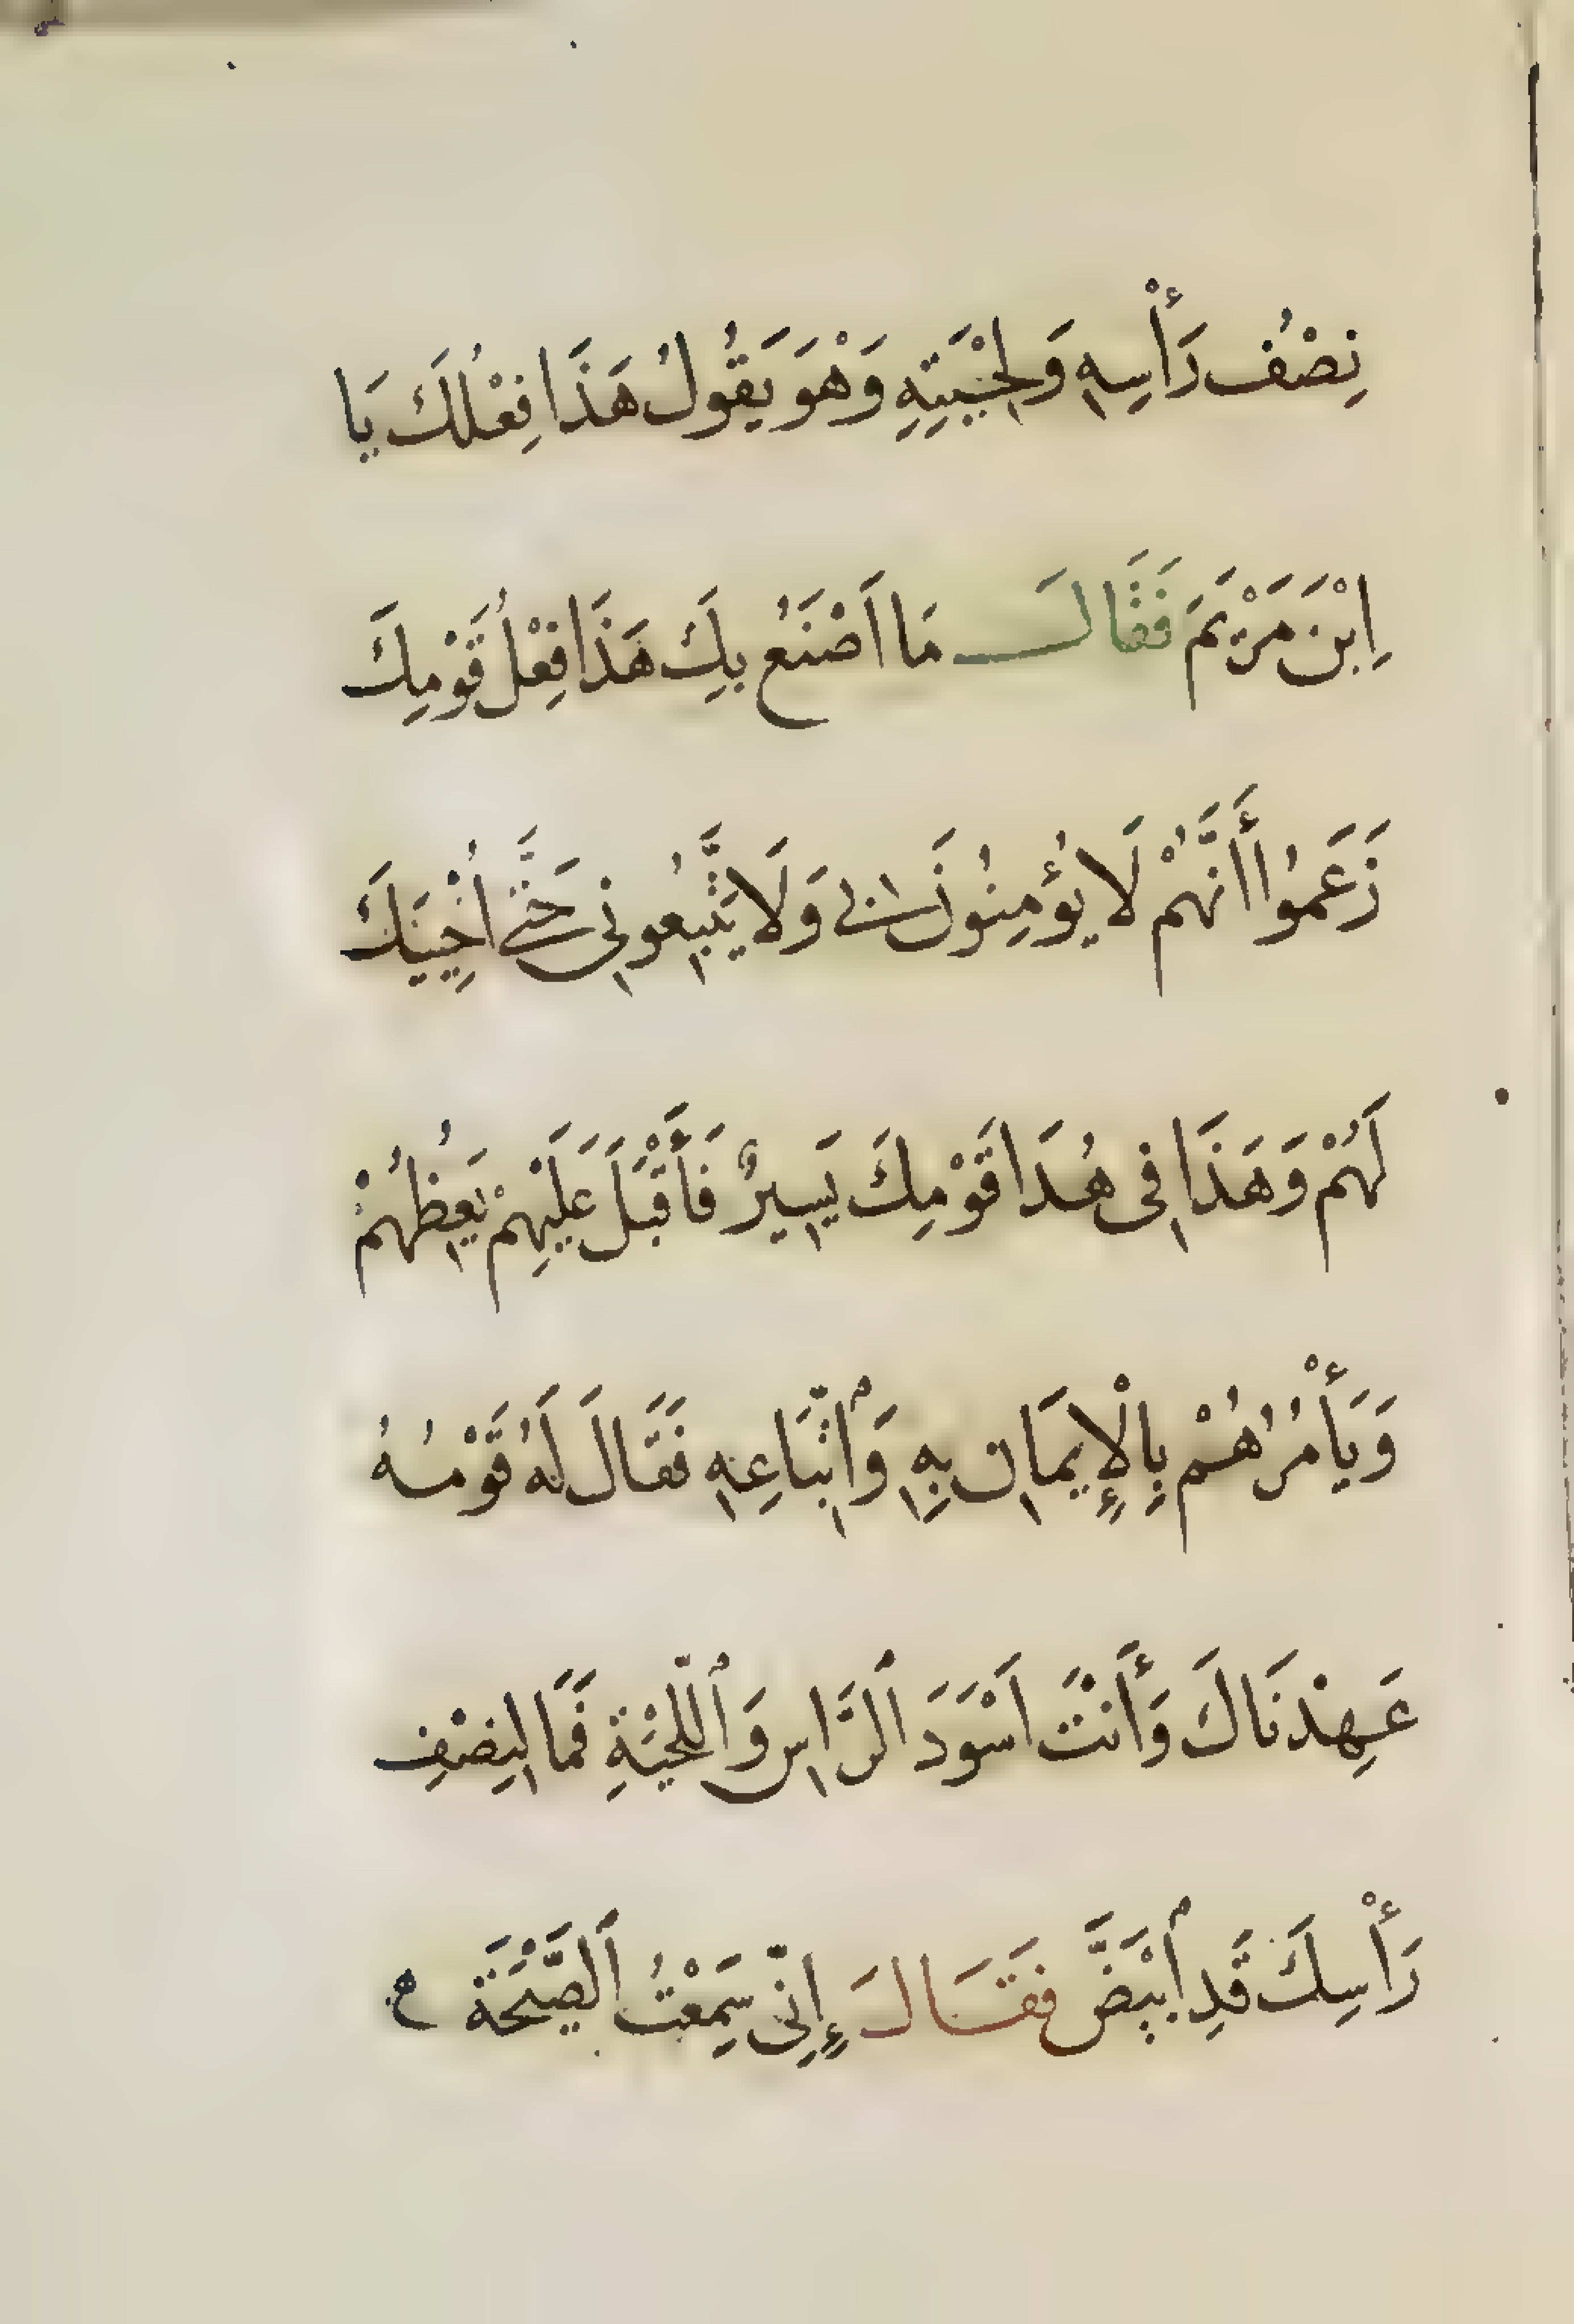 نِصْفُ رَأْسِهِ وَلِحْيَتِهِ وَهْوَ يَقُولُ هَذَا فِعْلُكَ يَا
اِبْنَ مَرْيَمَ فَقَالَ مَا اَصْنَعُ بِكَ هَذَا فِعْلُ قَوْمِكَ
زَعَمُوا أَنَّهُمْ لَا يُؤمِنُونَ بِي وَلَا يَتَّبِعُونِي حَتَّى اُحْيِيَكَ
لَهُمْ وَهَذَا فِى هُدَا قَوْمِكَ يَسِيرٌ فَأَقْبَلَ عَلَيْهِمْ يَعِظُهُمْ
وَيَأْمُرُهُمْ بِالْإِيمَانِ بِهِ وَٱتِّبَاعِهِ فَقَالَ لَهُ قَوْمُهُ
عَهِدْنَاكَ وَأَنْتَ اَسْوَدَ ٱلرَّاسِ وَٱللِّحْيَةِ فَمَا لِنِصْفِ
رَأْسِكَ قَدِ ٱبْيَضَّ فَقَالَ إِنِّى سَمِعْتُ ٱلصَّيْحَةَ